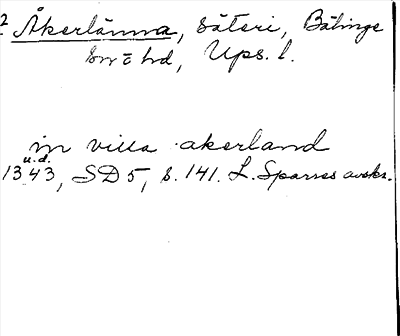 2 Åkerlänna, säteri, Bälinge
sn o hd, Ups. l.
in villa akerland
u.d.
1343, SD 5, s. 141. L. Sparres avskr.